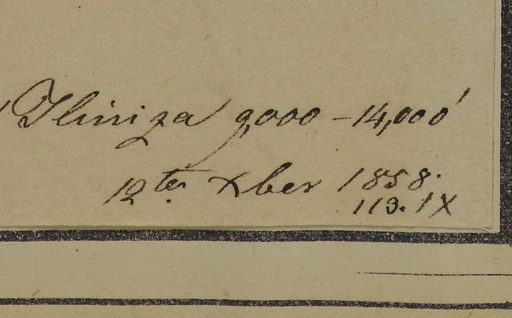 Iliniza 9,000 – 14,000'
12ter Xber 1858.
113. IX